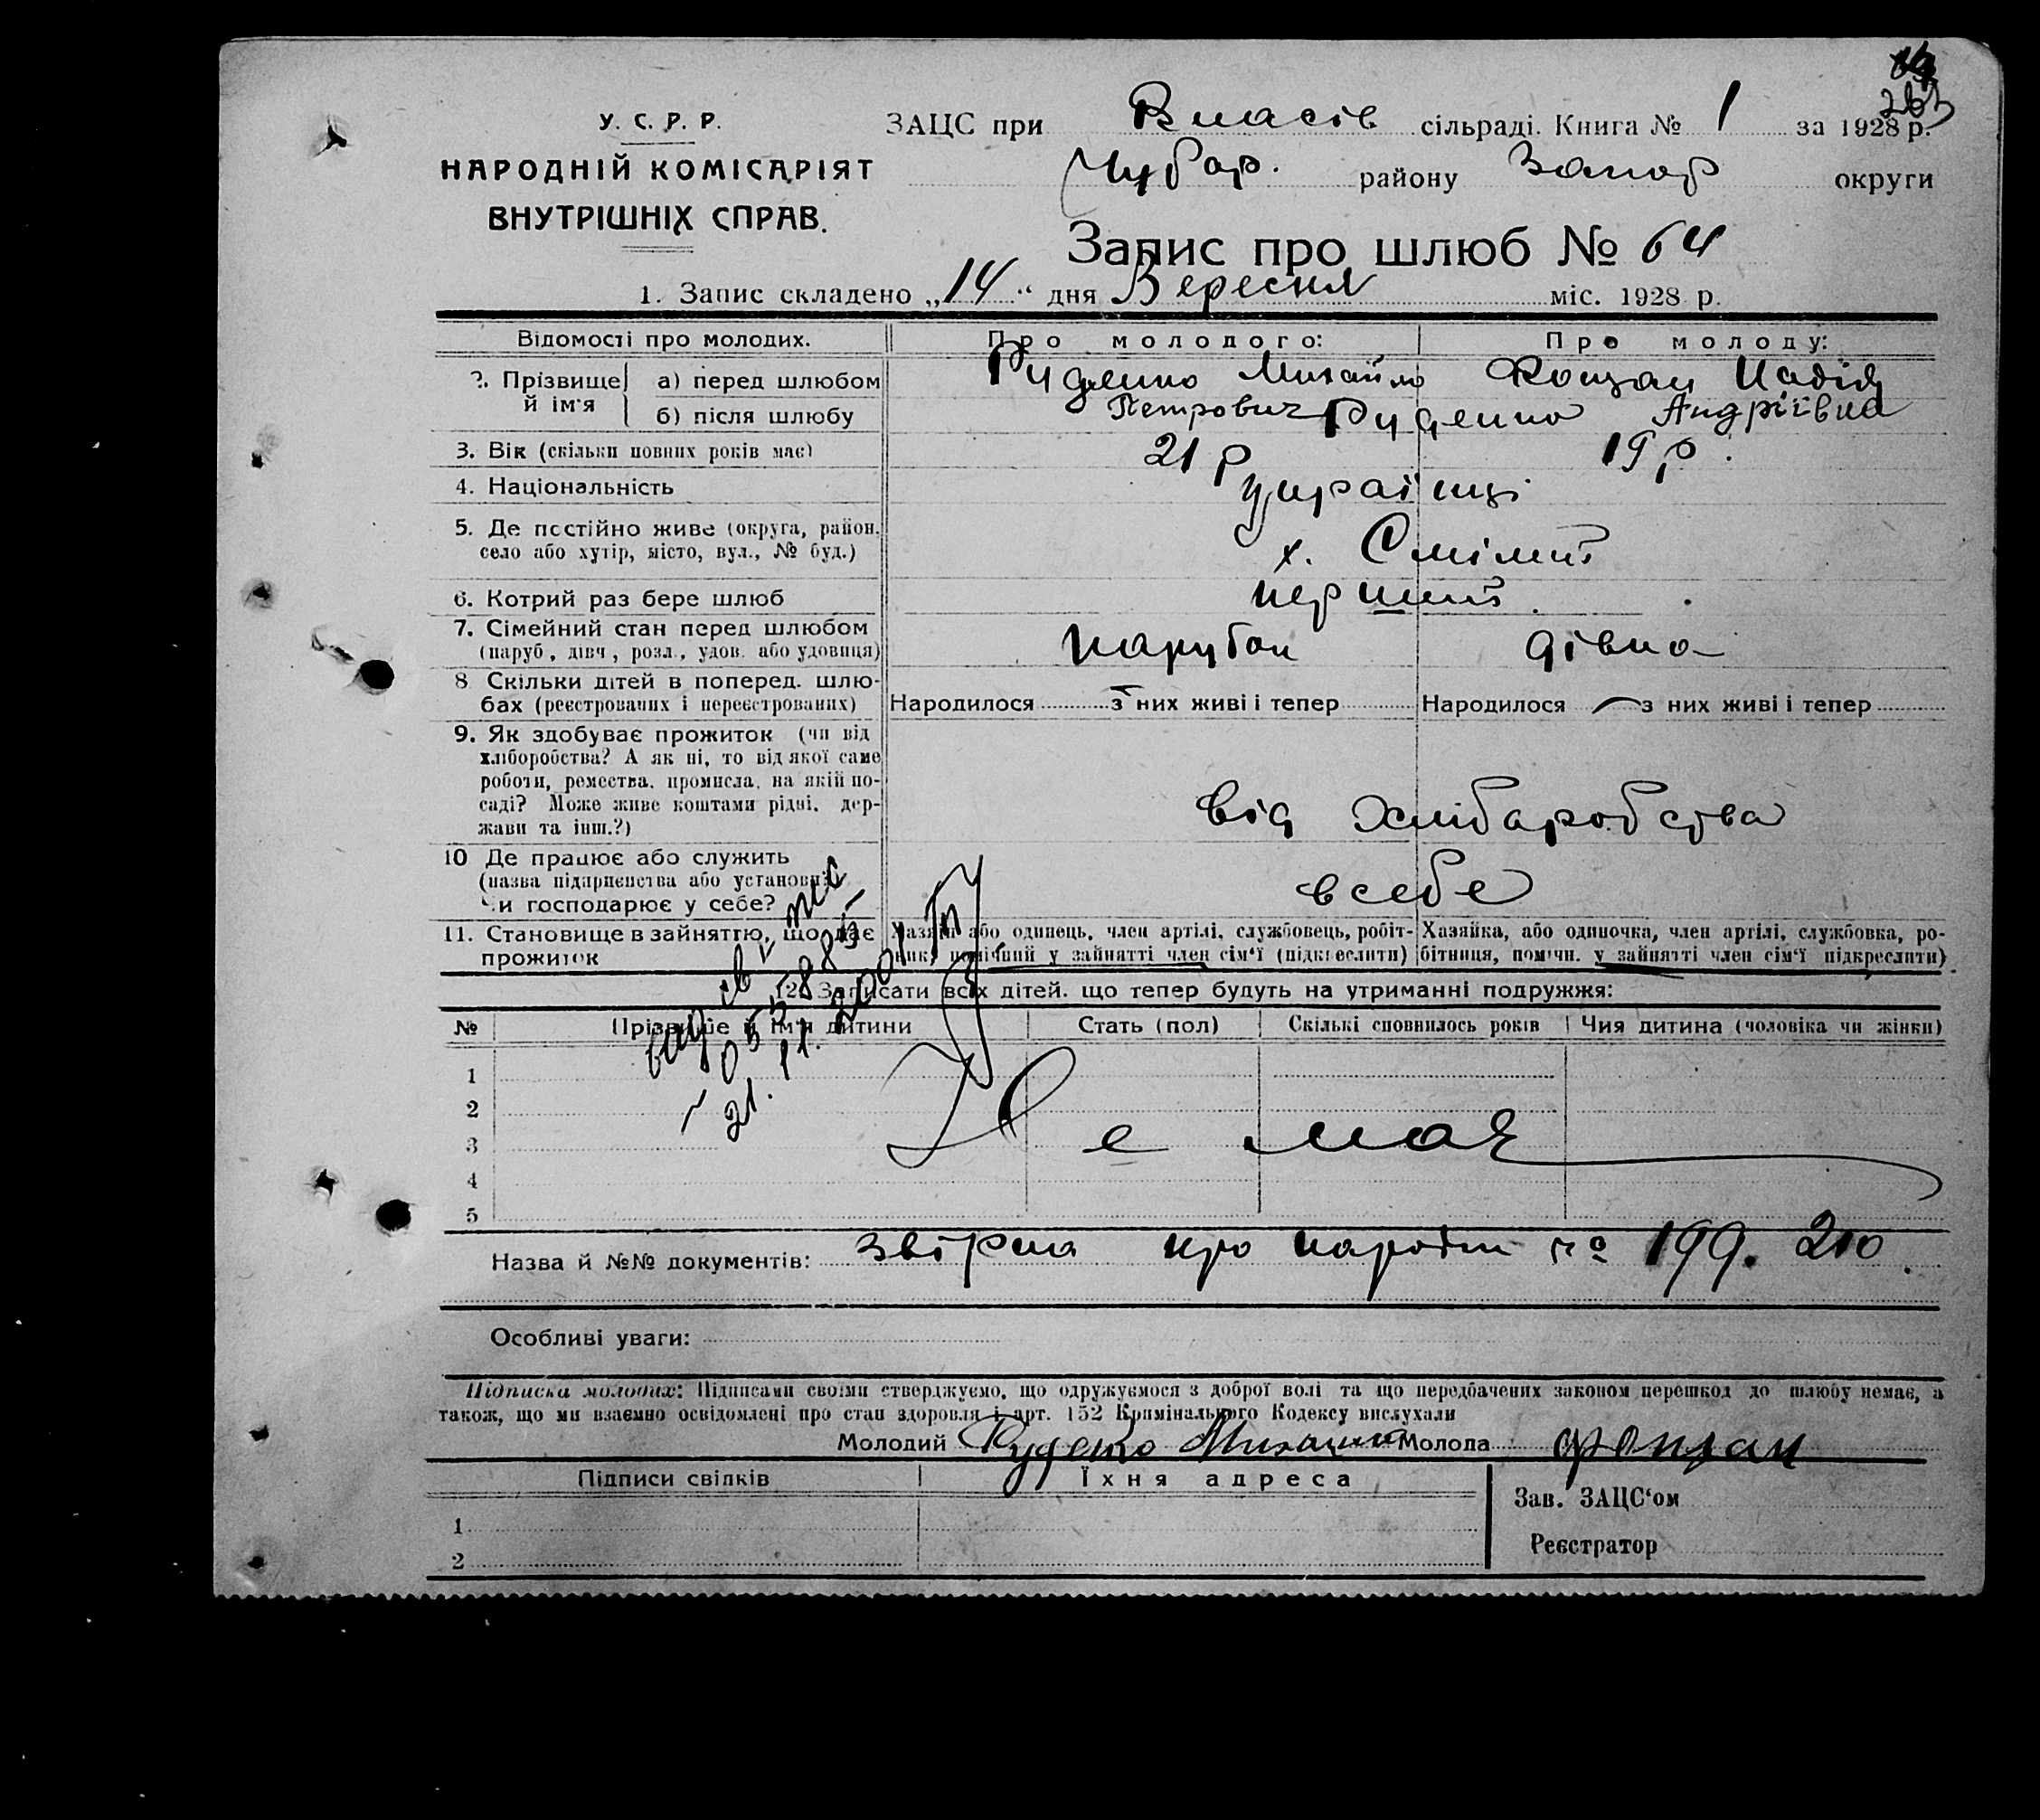 263
У. С. Р. Р.
НАРОДНІЙ КОМІСАРІЯТ
ВНУТРІШНІХ СПРАВ.
ЗАЦС при Власів сільраді. Книга № 1 за 1928 р.
Чубар. району Запор округи
Запис про шлюб № 64
1. Запис складено „14“ дня Вересня міс. 1928 р.
Відомості про молодих. Про молодого: Про молоду:
2. Прізвище й ім'я а) перед шлюбом Руденко Михайло Петрович Надія Андріївна
б) після шлюбу Руденко
3. Вік (скільки повних років має) 21 р 19 р.
4. Національність українці
5. Де постійно живе (округа, район,
село або хутір, місто, вул., № буд.) х. Смілий
6. Котрий раз бере шлюб перший
7. Сімейний стан перед шлюбом
(паруб., дівч., розл., удов. або удовиця) парубок дівка
8 Скільки дітей в поперед. шлю-
бах (реєстрованих і нереєстрованих) Народилося з них живі і тепер Народилося з них живі і тепер
9. Як здобуває прожиток (чи від
хліборобства? А як ні, то від якої саме
роботи, ремества, промисла, на якій по-
саді? Може живе коштами рідні, дер-
жави та інш.?) від хліборобства
10 Де працює або служить
(назва підприємства або установи)
чи господарює у себе? в себе
11. Становище в зайняттю, що дає
прожиток
Хазяїн або одинець, член артілі, службовець, робіт-
ник, помічний у зайнятті член сім'ї (підкреслити)
Хазяйка, або одиночка, член артілі, службовка, ро-
бітниця, помічн. у зайнятті член сім'ї підкреслити)
12. Записати всіх дітей, що тепер будуть на утриманні подружжя:
№ Прізвище й ім'я дитини Стать (пол) Скількі сповнилось років Чия дитина (чоловіка чи жінки)
1
2
3 Не має
4
5
21. 11. 2001
Назва й №№ документів: звірена про народин № 199. 210.
Особливі уваги:
Підписка молодих: Підписами своїми стверджуємо, що одружуємося з доброї волі та що передбачених законом перешкод до шлюбу немає, а
також, що ми взаємно освідомлені про стан здоровля і арт. 152 Кримінального Кодексу вислухали
Молодий Руденко Михайло Молода
Підписи свідків Їхня адреса
Зав. ЗАЦС'ом
1
Реєстратор
2